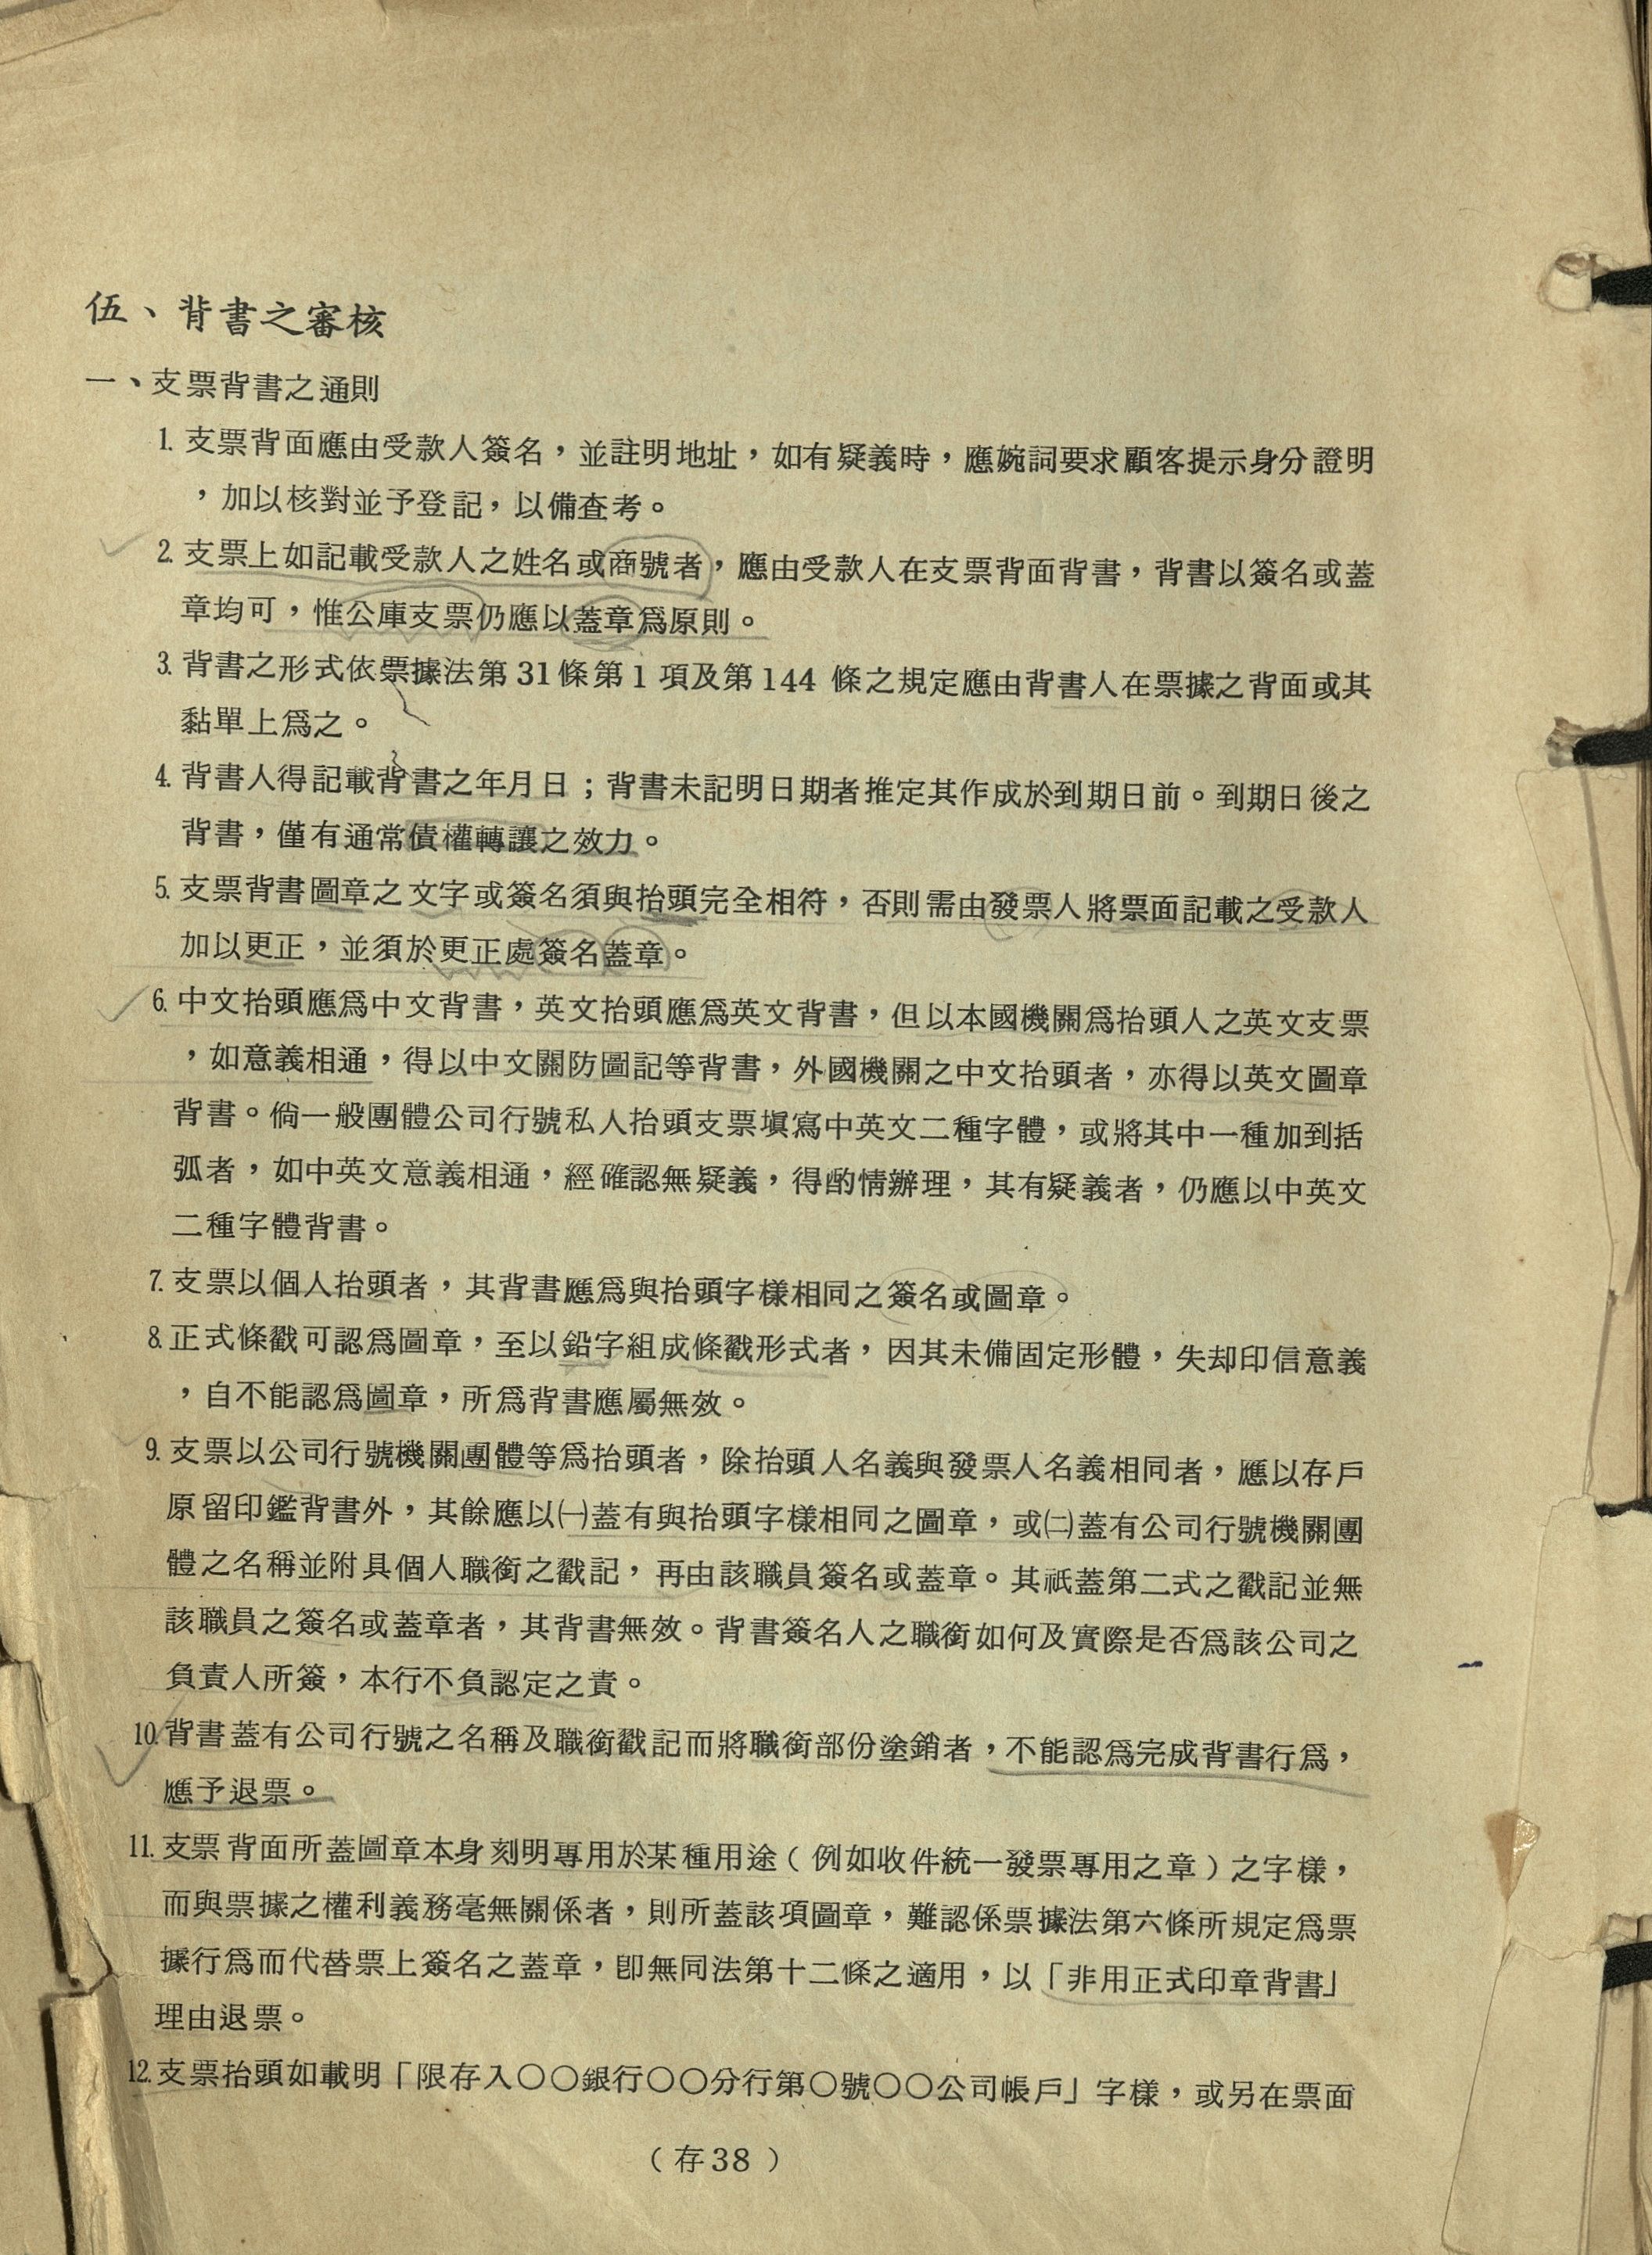 伍、背書之審核
一、支票背書之通則
1. 支票背面應由受款人簽名，並註明地址，如有疑義時，應婉詞要求顧客提示身分證明
，加以核對並予登記，以備查考。
2. 支票上如記載受款人之姓名或商號者，應由受款人在支票背面背書，背書以簽名或蓋
章均可，惟公庫支票仍應以蓋章爲原則。
3. 背書之形式依票據法第31條第1項及第144條之規定應由背書人在票據之背面或其
黏單上爲之。
4. 背書人得記載背書之年月日；背書未記明日期者推定其作成於到期日前。到期日後之
背書，僅有通常債權轉讓之效力。
5. 支票背書圖章之文字或簽名須與抬頭完全相符，否則需由發票人將票面記載之受款人
加以更正，並須於更正處簽名蓋章。
6. 中文抬頭應爲中文背書，英文抬頭應爲英文背書，但以本國機關爲抬頭人之英文支票
，如意義相通，得以中文關防圖記等背書，外國機關之中文抬頭者，亦得以英文圖章
背書。倘一般團體公司行號私人抬頭支票塡寫中英文二種字體，或將其中一種加到括
弧者，如中英文意義相通，經確認無疑義，得酌情辦理，其有疑義者，仍應以中英文
二種字體背書。
7. 支票以個人抬頭者，其背書應爲與抬頭字樣相同之簽名或圖章。
8. 正式條戳可認爲圖章，至以鉛字組成條戳形式者，因其未備固定形體，失却印信意義
，自不能認爲圖章，所爲背書應屬無效。
9. 支票以公司行號機關團體等爲抬頭者，除抬頭人名義與發票人名義相同者，應以存戶
原留印鑑背書外，其餘應以㈠蓋有與抬頭字樣相同之圖章，或㈡蓋有公司行號機關團
體之名稱並附具個人職銜之戳記，再由該職員簽名或蓋章。其祇蓋第二式之戳記並無
該職員之簽名或蓋章者，其背書無效。背書簽名人之職銜如何及實際是否爲該公司之
負責人所簽，本行不負認定之責。
10. 背書蓋有公司行號之名稱及職銜戳記而將職銜部份塗銷者，不能認爲完成背書行爲，
應予退票。
11. 支票背面所蓋圖章本身刻明專用於某種用途（例如收件統一發票專用之章）之字樣，
而與票據之權利義務毫無關係者，則所蓋該項圖章，難認係票據法第六條所規定爲票
據行爲而代替票上簽名之蓋章，卽無同法第十二條之適用，以「非用正式印章背書」
理由退票。
12. 支票抬頭如載明「限存入〇〇銀行〇〇分行第〇號〇〇公司帳戶」字樣，或另在票面
（存38）